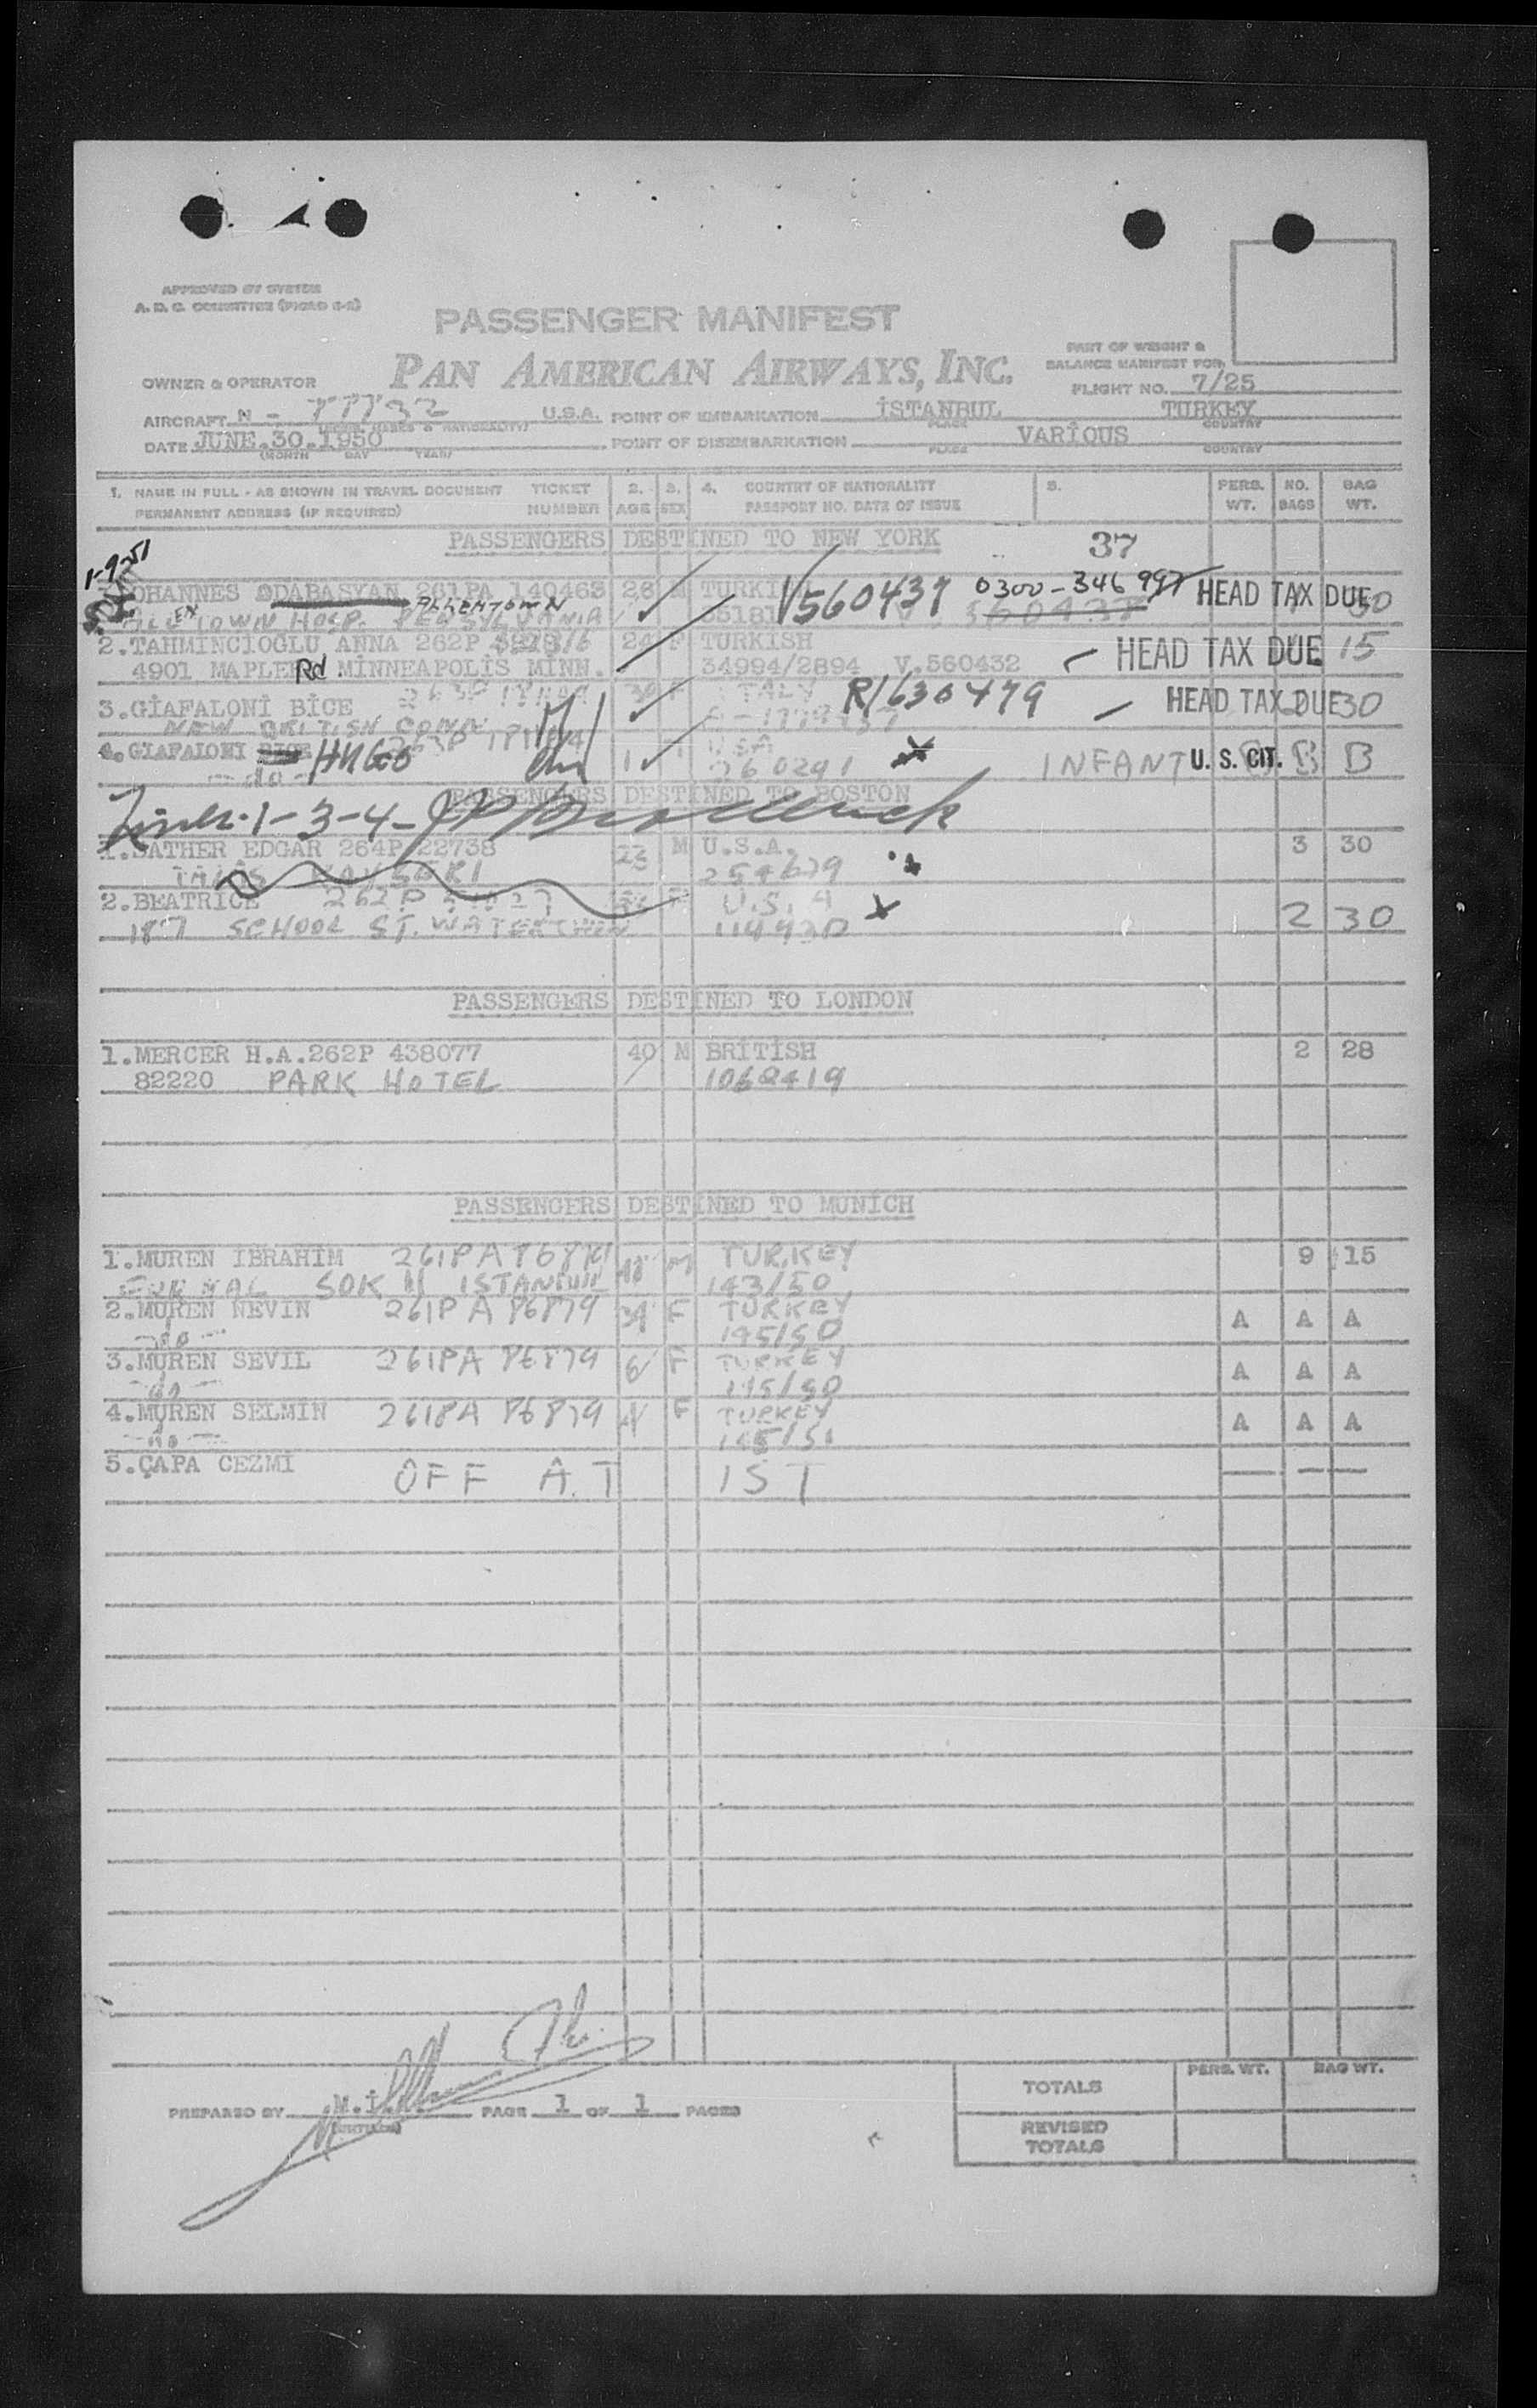 APPROVED BY SYSTEM
A. D. C. COMMITTEE
PASSENGER MANIFEST
PAN AMERICAN AIRWAYS, INC.
PART OF WEIGHT &
BALANCE MANIFEST FOR
OWNER & OPERATOR
FLIGHT NO. 7/25
AIRCRAFT N - U.S.A. POINT OF EMBARKATION İSTANBUL TURKEY
PLACE COUNTRY
DATE JUNE.30.1950 POINT OF DISEMBARKATION VARİOUS
(MONTH DAY YEAR) PLACE COUNTRY
1. NAME IN FULL - AS SHOWN IN TRAVEL DOCUMENT TICKET 2. 3. 4. COUNTRY OF NATIONALITY 5. PERS. NO. BAG
PERMANENT ADDRESS (IF REQUIRED) NUMBER AGE SEX PASSPORT NO. DATE OF ISSUE WT. BAGS WT.
PASSENGERS DESTINED TO NEW YORK 37
OHANNES ODABASYAN 261PA 140463 28 M V560437 0300-346 HEAD TAX DUE
ALLENTOWN
TOWN HOSP. PENSYLVANIA
2.TAHMINCIOGLU ANNA 262P 24 F TURKISH HEAD TAX DUE 15
4901 MAPLE Rd MİNNEAPOLİS MİNN. 34994/2894 V.560432
3.GİAFALONİ BİCE 30 ITALY R/630479 HEAD TAX DUE 30
NEW BRITISH CONN
4.GIAFALONI HUGO 1 USA INFANT U. S. CIT. B B
-do- 260291
PASSENGERS DESTINED TO BOSTON
1-3-4-
1.SATHER EDGAR 264P 22738 M U.S.A. 3 30
TALAS KAYSERI 254679
2.BEATRICE 262P U.S.A 2 30
187 SCHOOL ST. WATERTOWN 114930
PASSENGERS DESTINED TO LONDON
1.MERCER H.A.262P 438077 40 M BRİTİSH 2 28
82220 PARK HOTEL 1062419
PASSENGERS DESTINED TO MUNİCH
1.MUREN IBRAHİM 261PA M TURKEY 9 15
SOK 11 ISTANBUL 143/50
2.MUREN NEVIN 261PA 86879 34 F TURKEY A A A
-do- 145/50
3.MUREN SEVIL 261PA 86879 6 F TURKEY A A A
-do- 145/50
4.MUREN SELMIN 261PA 86879 F TURKEY A A A
-do-
5.ÇAPA CEZMİ OFF A.T IST
PERS. WT. BAG WT.
TOTALS
PREPARED BY PAGE 1 OF 1 PAGES
REVISED
TOTALS